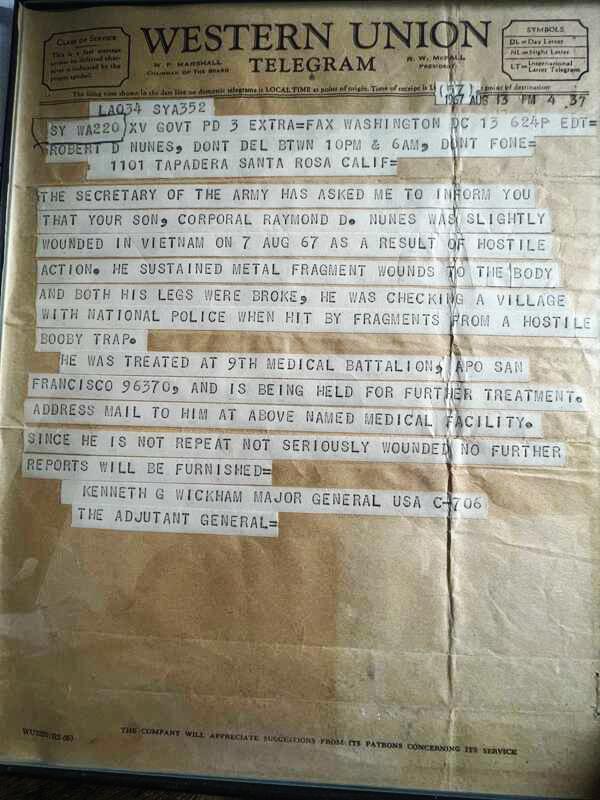 CLASS OF SERVICE
This is a fast message unless its deferred character is indicated by the proper symbol.
WESTERN UNION
TELEGRAM
W. P. MARSHALL
CHAIRMAN OF THE BOARD
R. W. McFALL
PRESIDENT
SYMBOLS
DL=Day Letter
NL=Night Letter
LT=International Letter Telegram
The filing time shown in the date line on domestic telegrams is LOCAL TIME at point of origin. Time of receipt is point of destination
LA034 SYA352
(57)
1967 AUG 13 PM 4 37
SY WA220 XV GOVT PD 3 EXTRA=FAX WASHINGTON DC 13 624P EDT=
ROBERT D NUNES, DONT DEL BTWN 10PM & 6AM, DONT FONE=
1101 TAPADERA SANTA ROSA CALIF=
THE SECRETARY OF THE ARMY HAS ASKED ME TO INFORM YOU
THAT YOUR SON, CORPORAL RAYMOND D. NUNES WAS SLIGHTLY
WOUNDED IN VIETNAM ON 7 AUG 67 AS A RESULT OF HOSTILE
ACTION. HE SUSTAINED METAL FRAGMENT WOUNDS TO THE BODY
AND BOTH HIS LEGS WERE BROKE, HE WAS CHECKING A VILLAGE
WITH NATIONAL POLICE WHEN HIT BY FRAGMENTS FROM A HOSTILE
BOOBY TRAP.
HE WAS TREATED AT 9TH MEDICAL BATTALION, APO SAN
FRANCISCO 96370, AND IS BEING HELD FOR FURTHER TREATMENT.
ADDRESS MAIL TO HIM AT ABOVE NAMED MEDICAL FACILITY.
SINCE HE IS NOT REPEAT NOT SERIOUSLY WOUNDED NO FURTHER
REPORTS WILL BE FURNISHED=
KENNETH G WICKHAM MAJOR GENERAL USA C-706
THE ADJUTANT GENERAL=
THE COMPANY WILL APPRECIATE SUGGESTIONS FROM ITS PATRONS CONCERNING ITS SERVICE